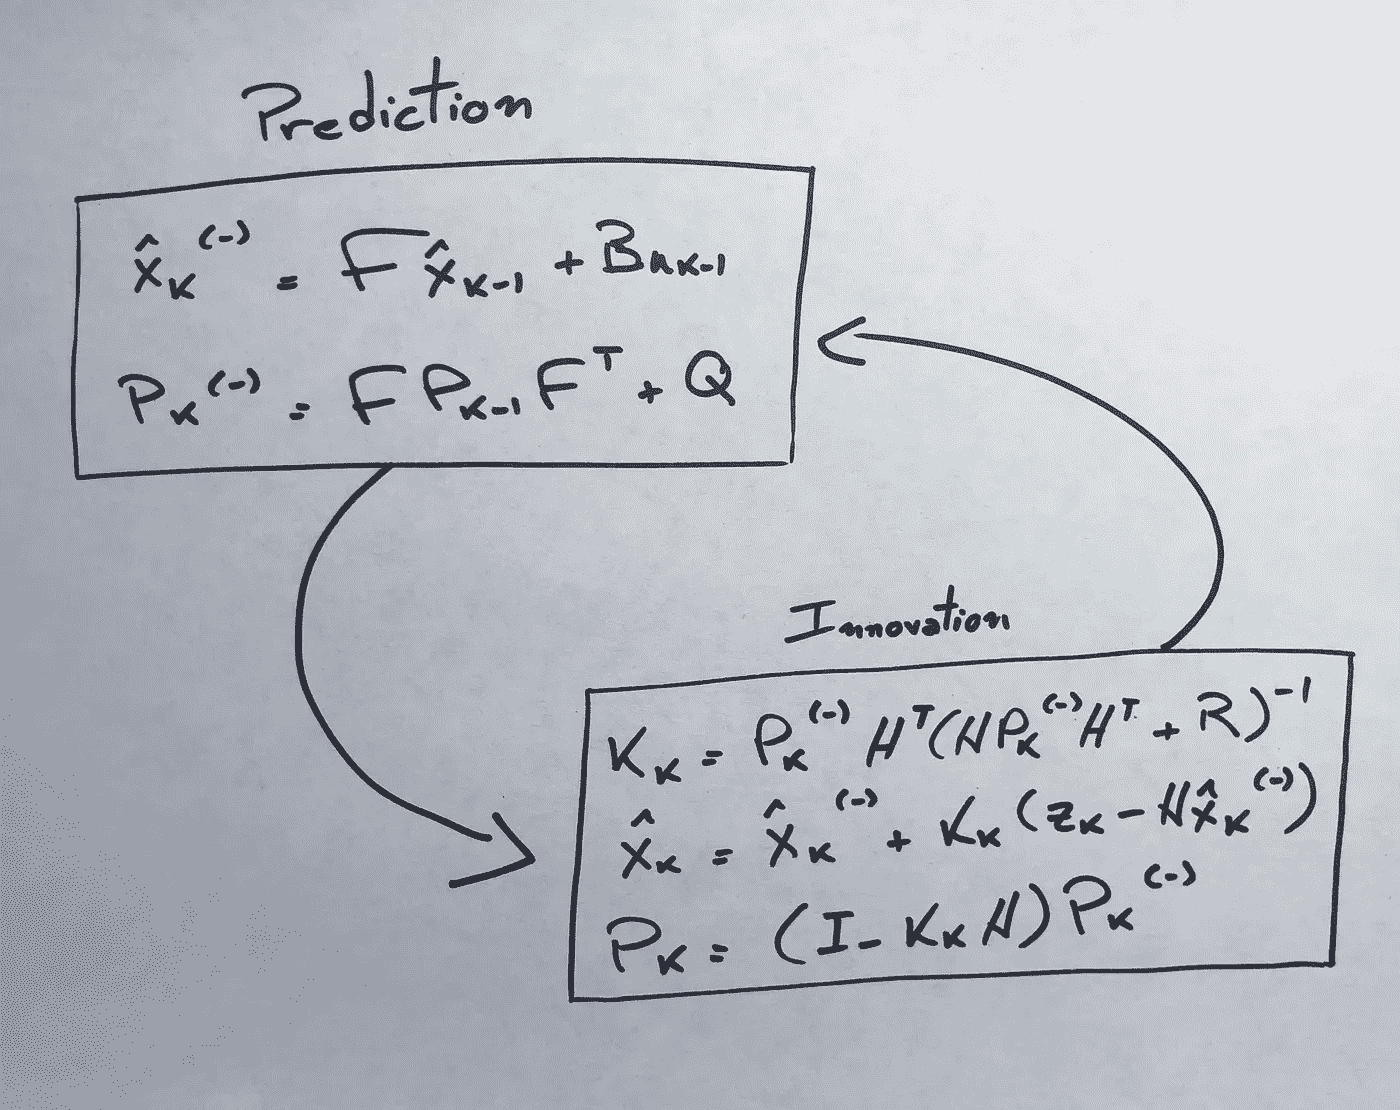 Prediction
x̂ₖ⁽⁻⁾ = F x̂ₖ₋₁ + Buₖ₋₁
Pₖ⁽⁻⁾ = F Pₖ₋₁ Fᵀ + Q
Innovation
Kₖ = Pₖ⁽⁻⁾ Hᵀ(HPₖ⁽⁻⁾Hᵀ + R)⁻¹
x̂ₖ = x̂ₖ⁽⁻⁾ + Kₖ(zₖ - Hx̂ₖ⁽⁻⁾)
Pₖ = (I - KₖH)Pₖ⁽⁻⁾